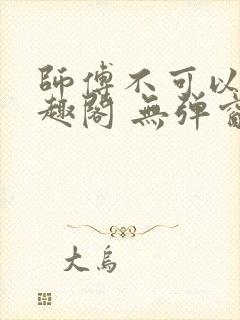 師傅不可以
趣閣 無彈窗
大烏